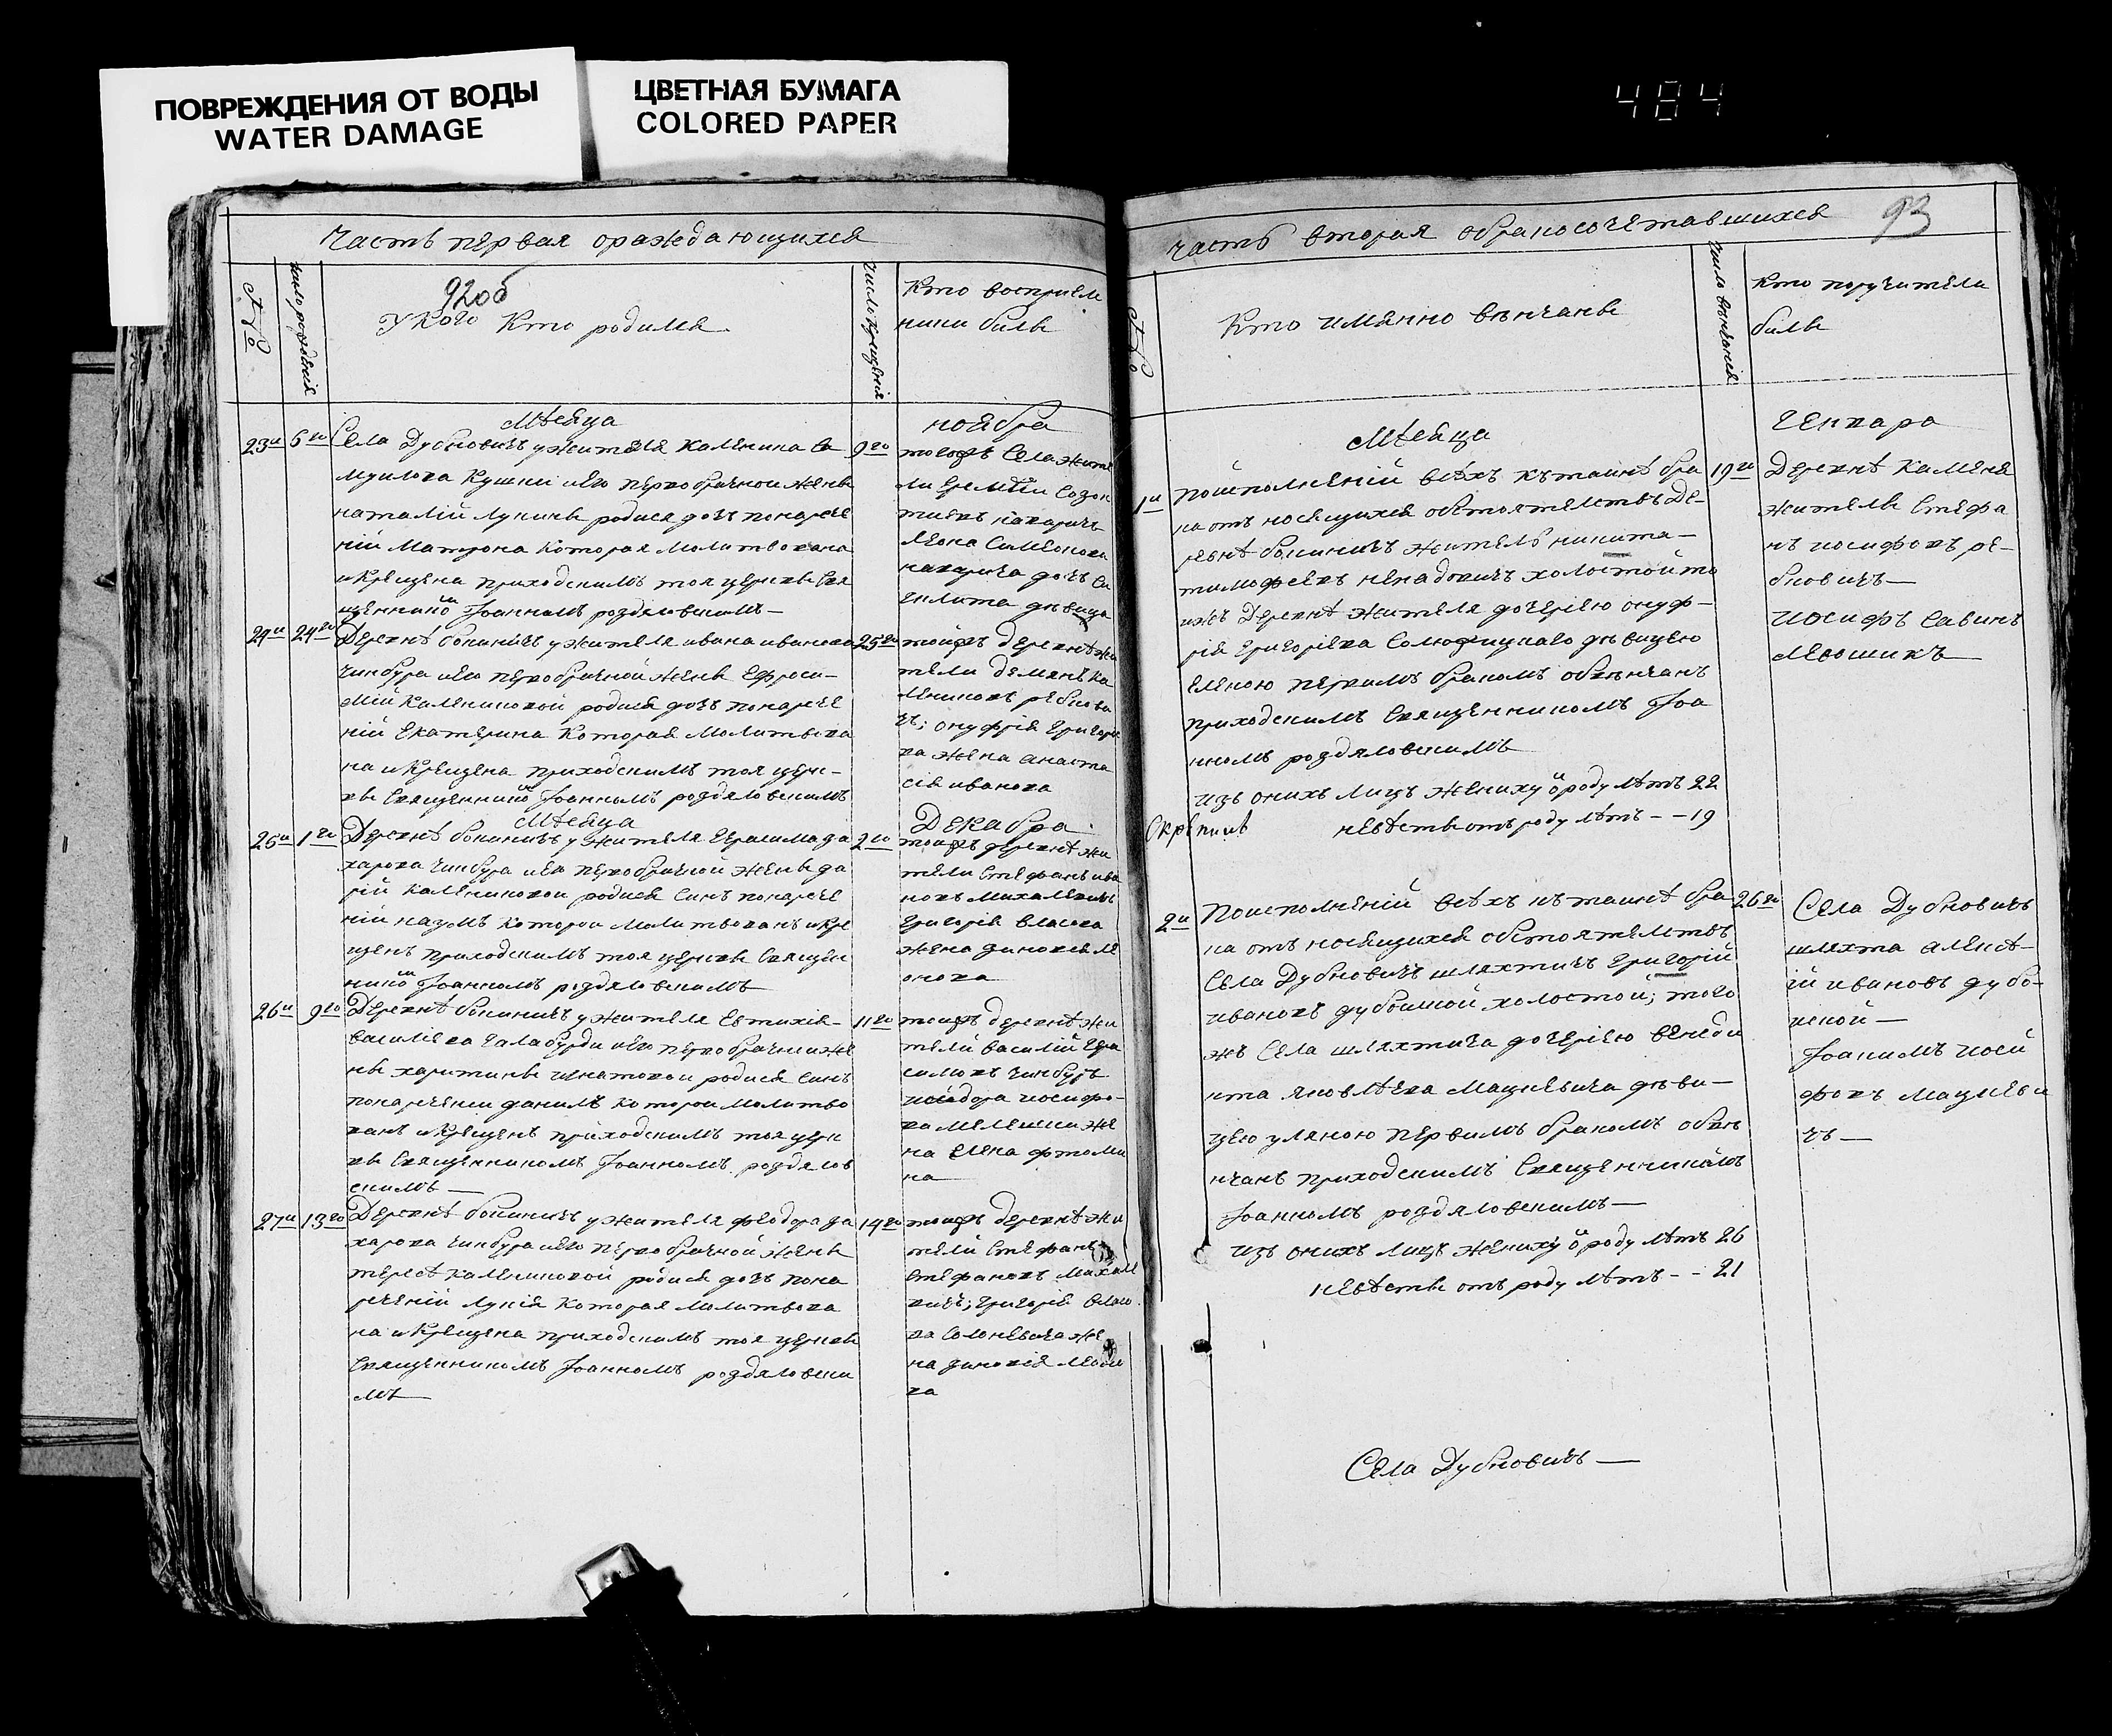 ПОВРЕЖДЕНИЯ ОТ ВОДЫ
WATER DAMAGE
ЦВЕТНАЯ БУМАГА
COLORED PAPER
484
Часть первая ораждающихся
92об
№
число рождения
У кого кто родился
число крещения
Кто восприем
ники были
Мѣсяца
ноября
23й
6го
Села Дубновичъ у жителя Каленика Са
муилова Кушни и его первобрачной жены
наталій лукины родися дочь понарече
ній Матрона которая молитвована
и крещена приходскимъ тоя церкви Свя
щенникомъ Іоанномъ роздяловскимъ —
9го
тогожъ Села жите
ли
Симеонова
дочь
дѣвица
24й
24го
Деревнѣ бокиничъ у жителя ивана иванова
чинбура и его первобрачной жены Ефроси-
ній Калениковой родися дочь понарече
ній Екатерина которая молитвова
на и крещена приходскимъ тоя церк-
ви Священникомъ Іоанномъ роздяловскимъ
25го
тойжъ деревнѣ жи
тели демянъ ка
лениковъ ребкови
чъ; онуфрія григорие
ва жена анаста
сія иванова
Мѣсяца
Декабра
25й
1го
Деревнѣ бокиничъ у жителя Герасима за
харова чинбура и его первобрачной жены да
рій Калениковой родися синъ понарече
ній наумъ которой молитвованъ и кре
щенъ приходскимъ тоя церкви Священ
никомъ Іоанномъ роздяловскимъ
2го
тойжъ деревнѣ жи
тели Стефанъ ива
новъ михалевичъ
Григорія власова
жена зиновія ле
онова
26й
9го
Деревнѣ бокиничъ у жителя Евтихія
василіева Галабурди и его первобрачной же
ны харитины игнатовой родися синъ
понареченіи данилъ которой молитво
ванъ и крещенъ приходскимъ тоя церк
ви Священникомъ Іоанномъ роздялов
скимъ —
11го
тойжъ деревнѣ жи
тели василій Гера
симовъ чинбуръ
исидора иосифо-
ва мелешки же
на елена фтоми
на
27й
13го
Деревнѣ бокиничъ у жителя феодора за
харова чинбура и его первобрачной жены
тересѣ калениковой родися дочь пона
реченій лукія которая молитвова
на и крещена приходскимъ тоя церкви
Священникомъ Іоанномъ роздяловски
мъ —
14го
тойжъ деревнѣ жи
тели Стефанъ
Стефановъ михале
вичъ; григорія власо
ва солоневича же
на зиновія леоно
ва
93
часть вторая обракосочетавшихся
№
Кто имянно вѣнчаны
число вѣнчания
Кто поручители
были
Мѣсяца
Генвара
1й
Поисполненій всѣхъ къ таинѣ бра
ка относящихся обстоятелствъ Де-
ревнѣ бокиничъ житель никита —
тимофеевъ ненадовичъ холостой то
ижъ деревнѣ жителя дочерію онуф-
рія григоріева дѣвицею
еленою первимъ бракомъ обвѣнчанъ
приходскимъ Священникомъ Іоа
нномъ роздяловскимъ
изъ онихъ лицъ жениху от роду лѣтъ 22
невѣсты отъ роду лѣтъ - - 19
Скрѣпилъ
19го
Деревнѣ Каменя
жители Стефа
нъ иосифовъ ре-
бковичъ —
иосифъ савинъ
левошикъ
2й
Поисполненій всѣхъ къ таинѣ бра
ка относящихся обстоятелствъ
Села Дубновичъ шляхтичъ григорій
ивановъ дубоцкой холостой; того
жъ Села шляхтича дочерію венеди
кта яковлѣва Мацкевича дѣви-
цею уляною первимъ бракомъ обвѣ
нчанъ приходскимъ Священникомъ
Іоанномъ роздяловскимъ —
изъ онихъ лицъ жениху от роду лѣтъ 26
невѣсты отъ роду лѣтъ - - 21
26го
Села Дубновичъ
шляхта алексѣ-
ій ивановъ дубо-
цкой —
Іоакимъ иоси
фовъ мацкеви
чъ —
Села Дубновичъ —